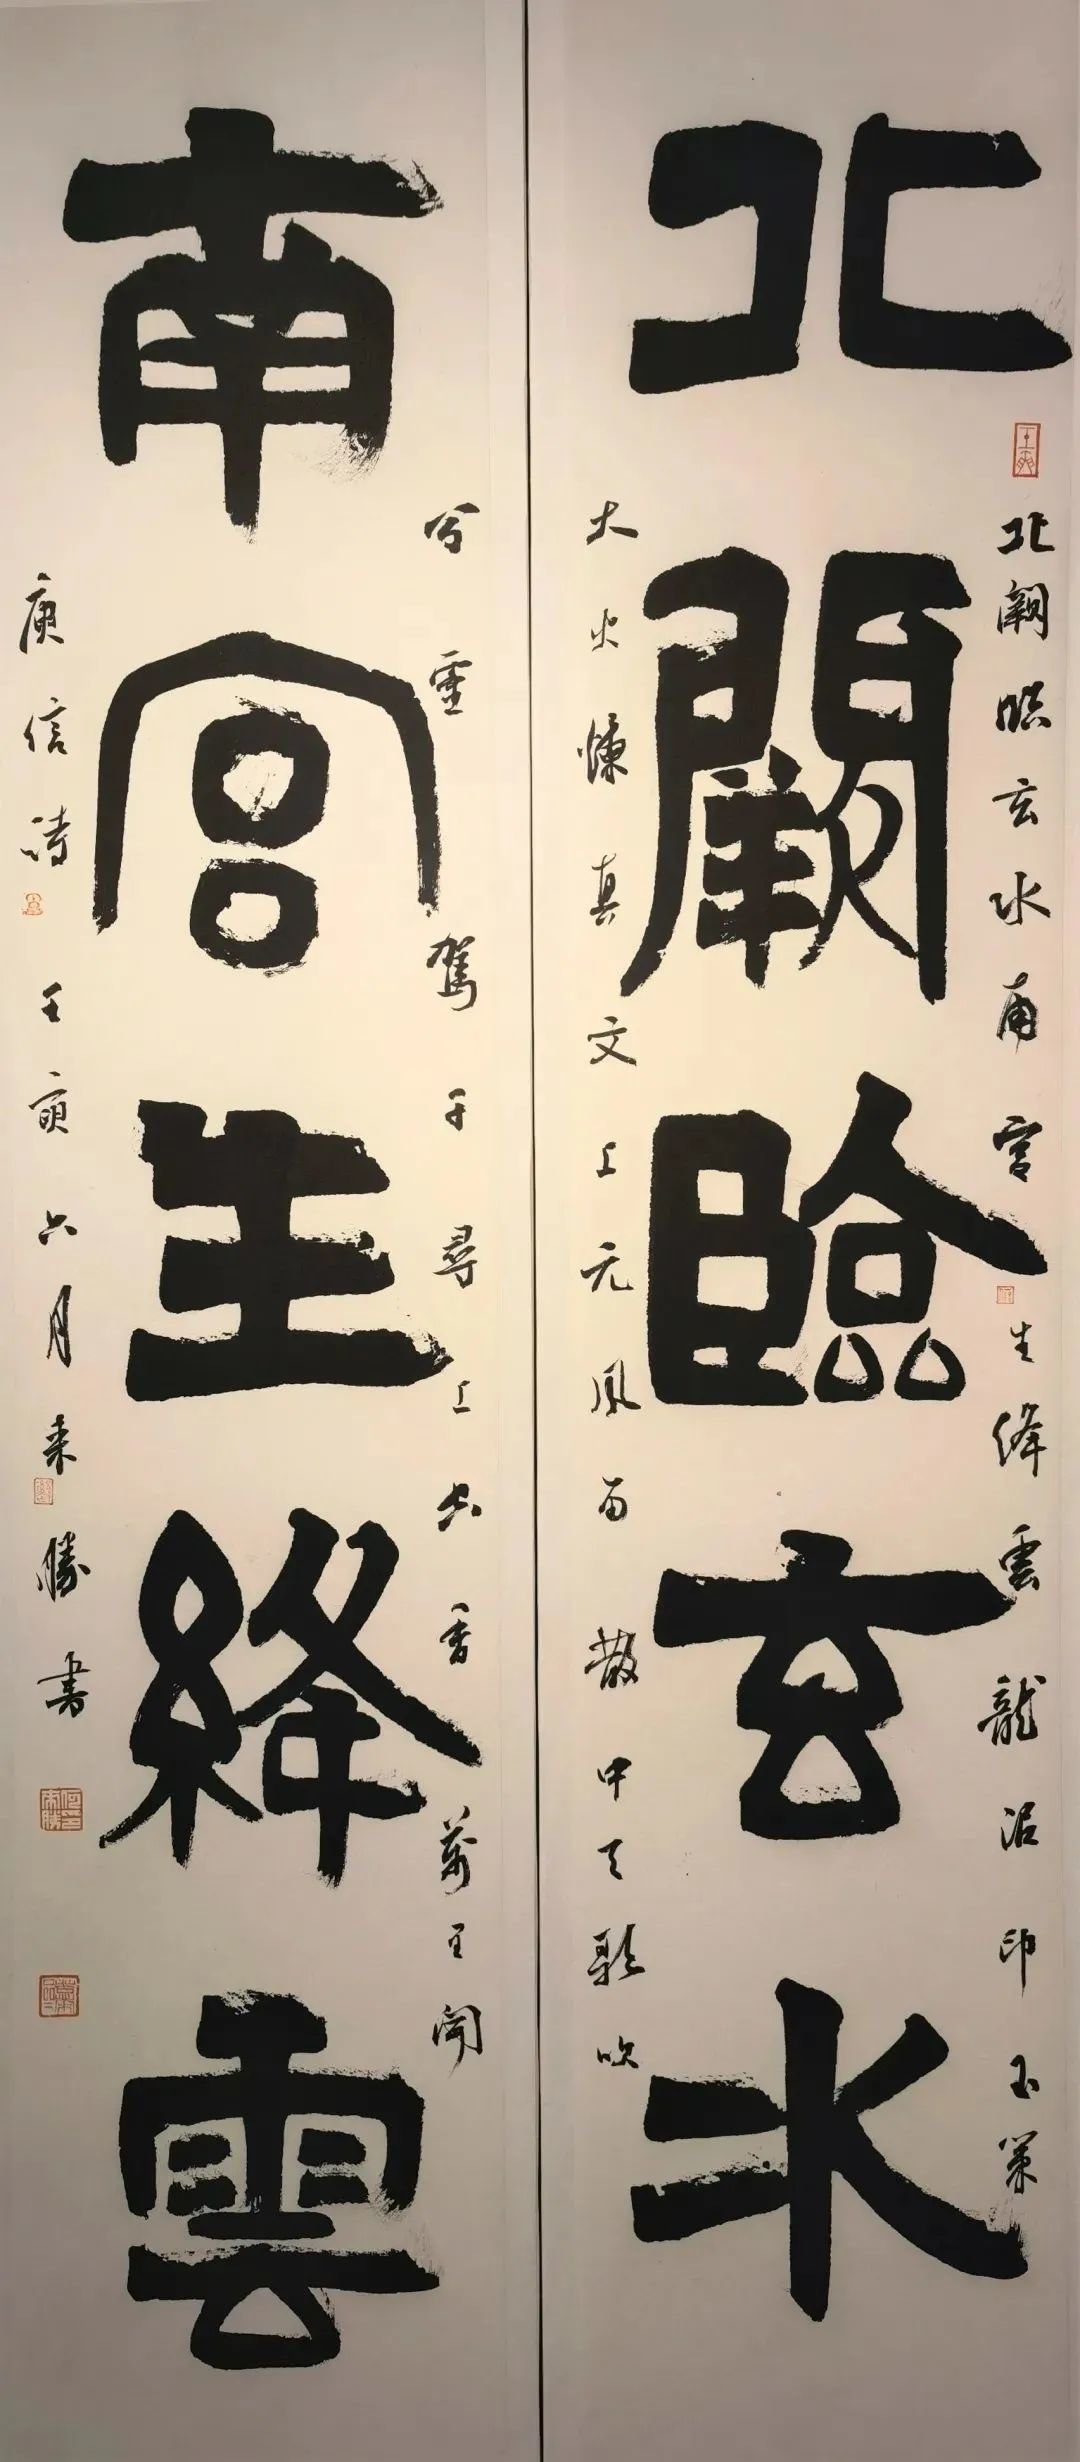 北闕臨玄水
南宮生絳雲
北闕臨玄水南宮生絳雲龍泥印玉策
大火煉真文上元風雨散中天歌吹
分靈駕千尋上空香萬里聞
庾信詩 壬寅六月來勝書